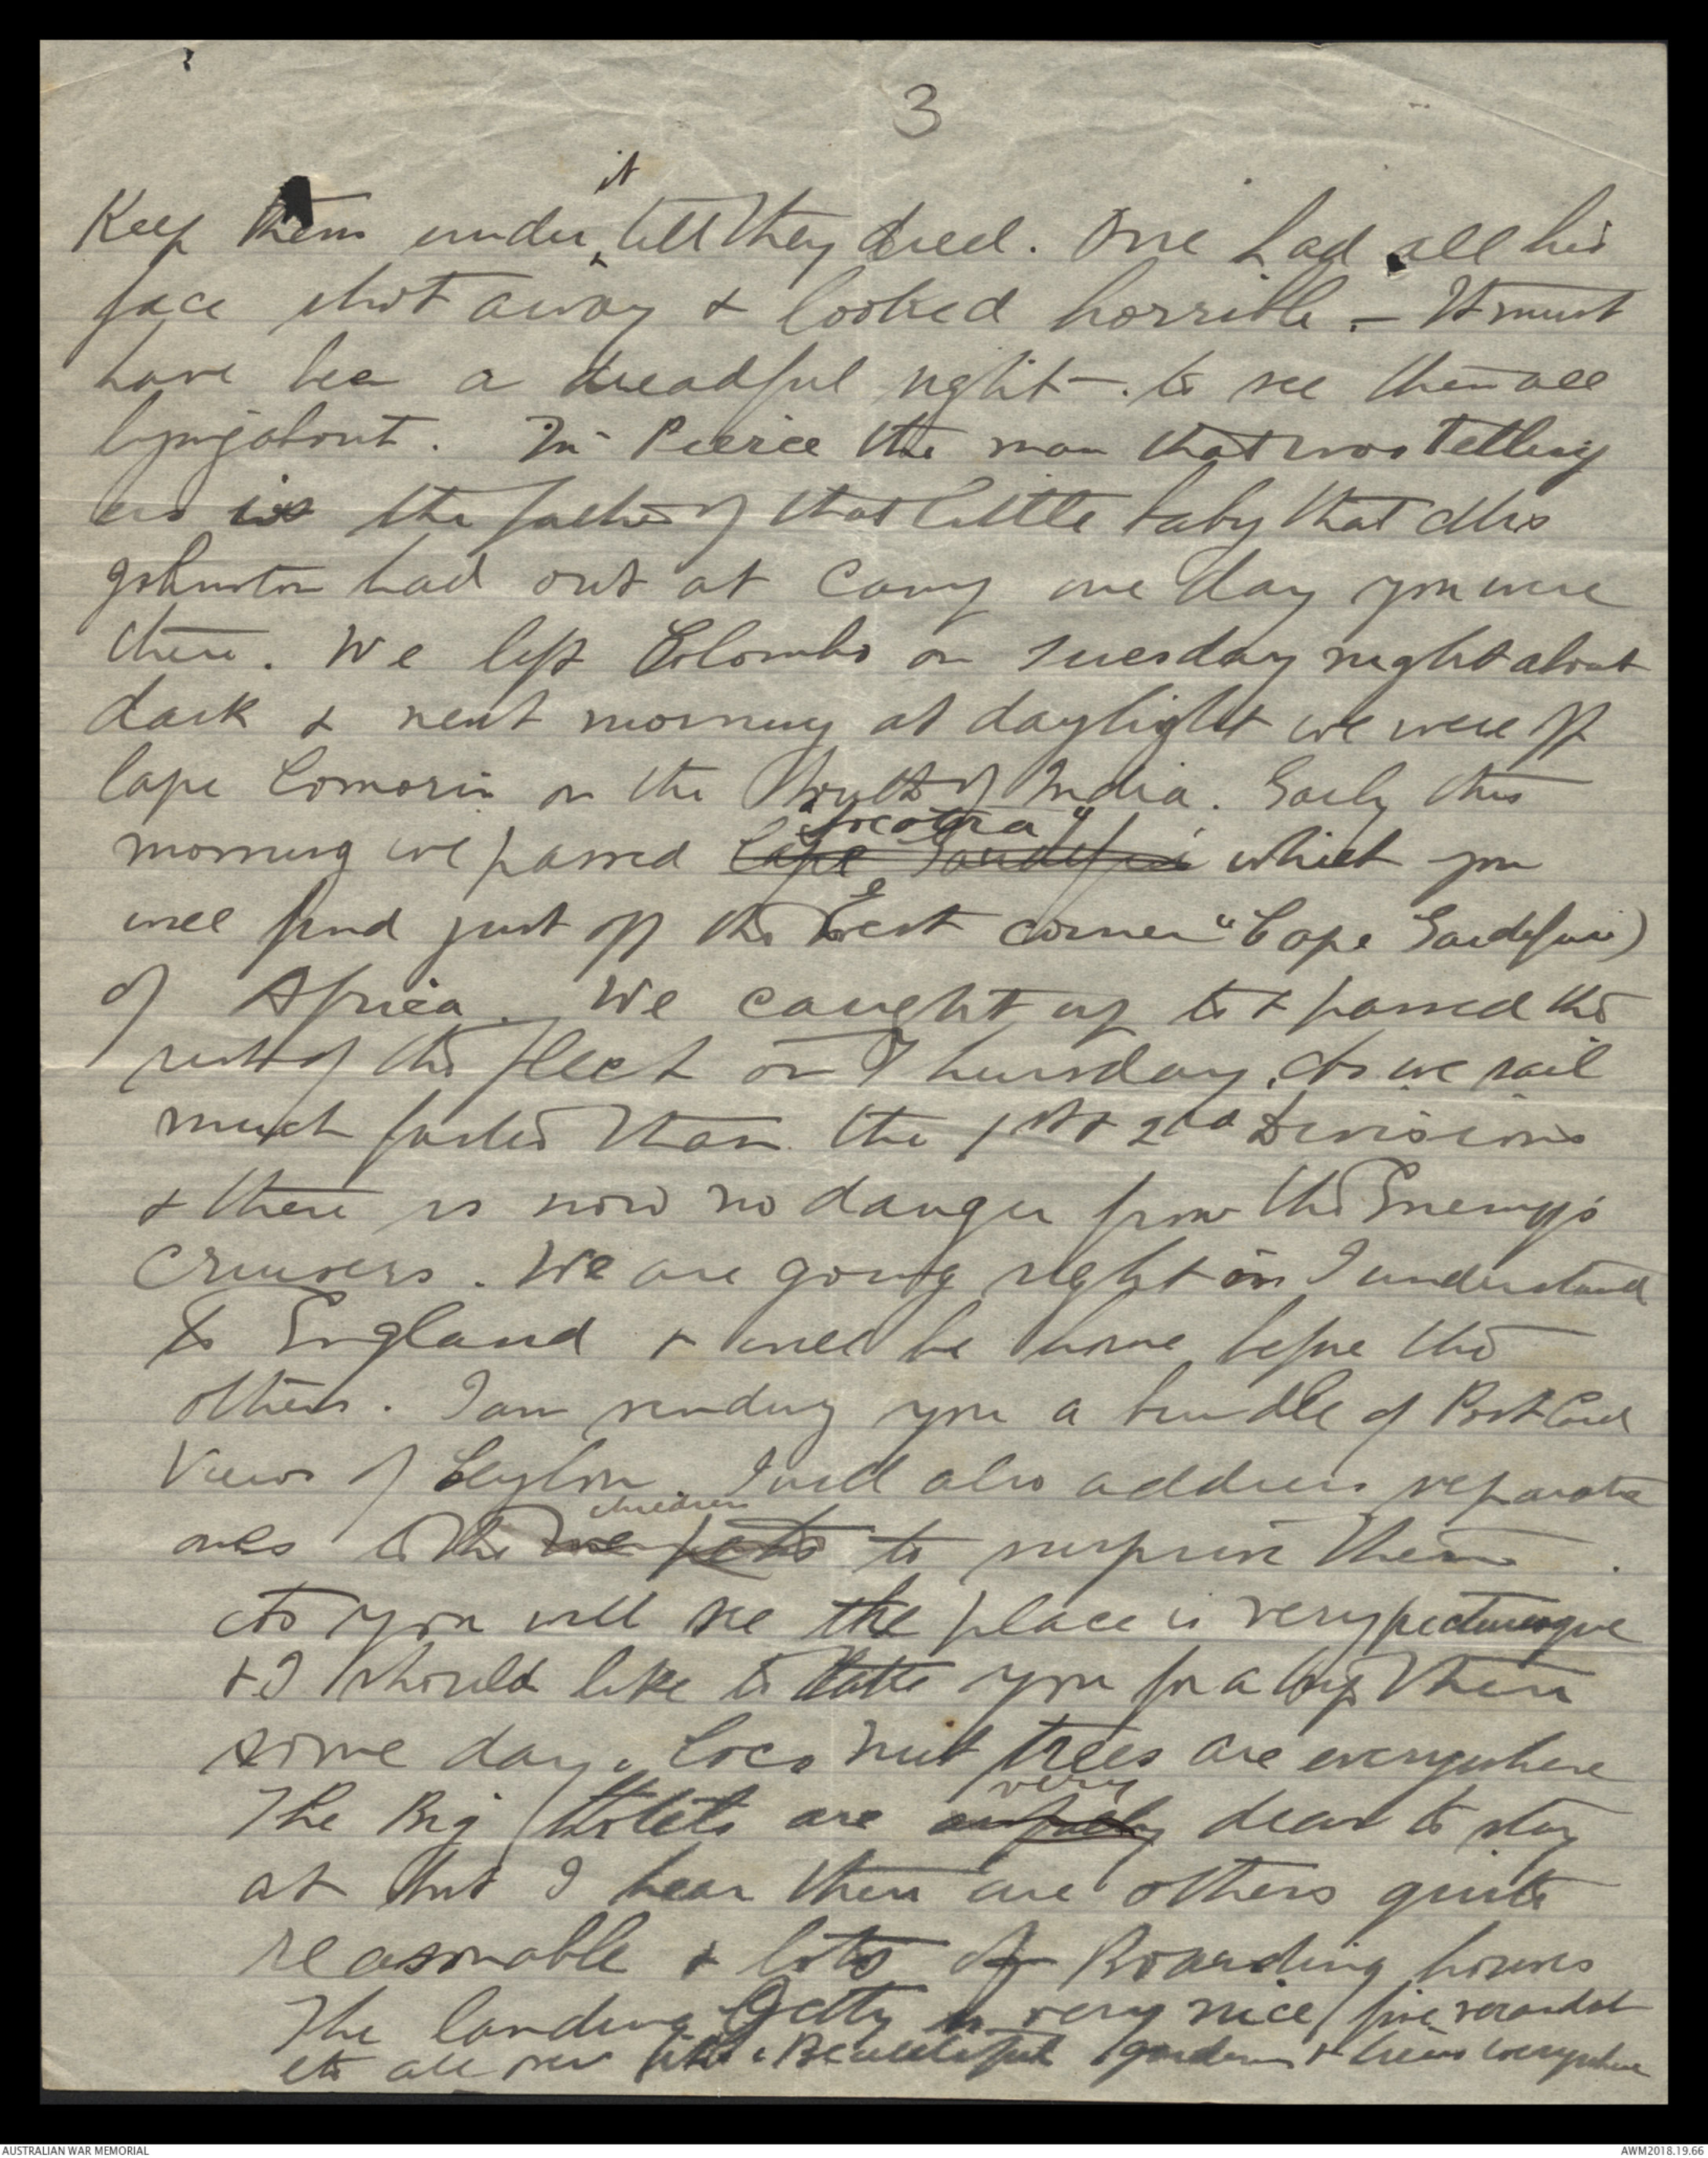 3
Keep them under it till they died. One had all his
face shot away & looked horrible. - It must
have bee a dreadful sight - . to see them all
lying about. Mr Pierce the man that was telling
us is the father of that little baby that Mrs
Johnston had out at Camp one day you were
there. We left Colombo on Tuesday night about
dark & next morning at daylight we were off
Cape Comorin on the South of India. Early this
morning we passed Cape Gardefui "Socotra" which you
will find just off the East corner "Cape Gardefui)
of Africa. We caught up to & passed the
rest of the fleet on Thursday. As we sail
much faster than the 1st & 2nd Divisions
& there is now no danger from the Enemy's
Cruisers. We are going right on I understand
to England & will be home before the
others. I am sending you a bundle of Post Card
Views of Ceylon I will also address separate
ones to the wee pets children to surprise them.
As you will see the place is very picturesque
& I should like to take you for a trip there
some day. Coco nut trees are everywhere
The Big Hotels are awfully very dear to stay
at but I hear there are others quite
reasonable & lots of Boarding houses
The landing Jetty is very nice fine verandah
etc all over it. Beautiful gardens & trees everywhere
AUSTRALIAN WAR MEMORIAL
AWM2018.19.66